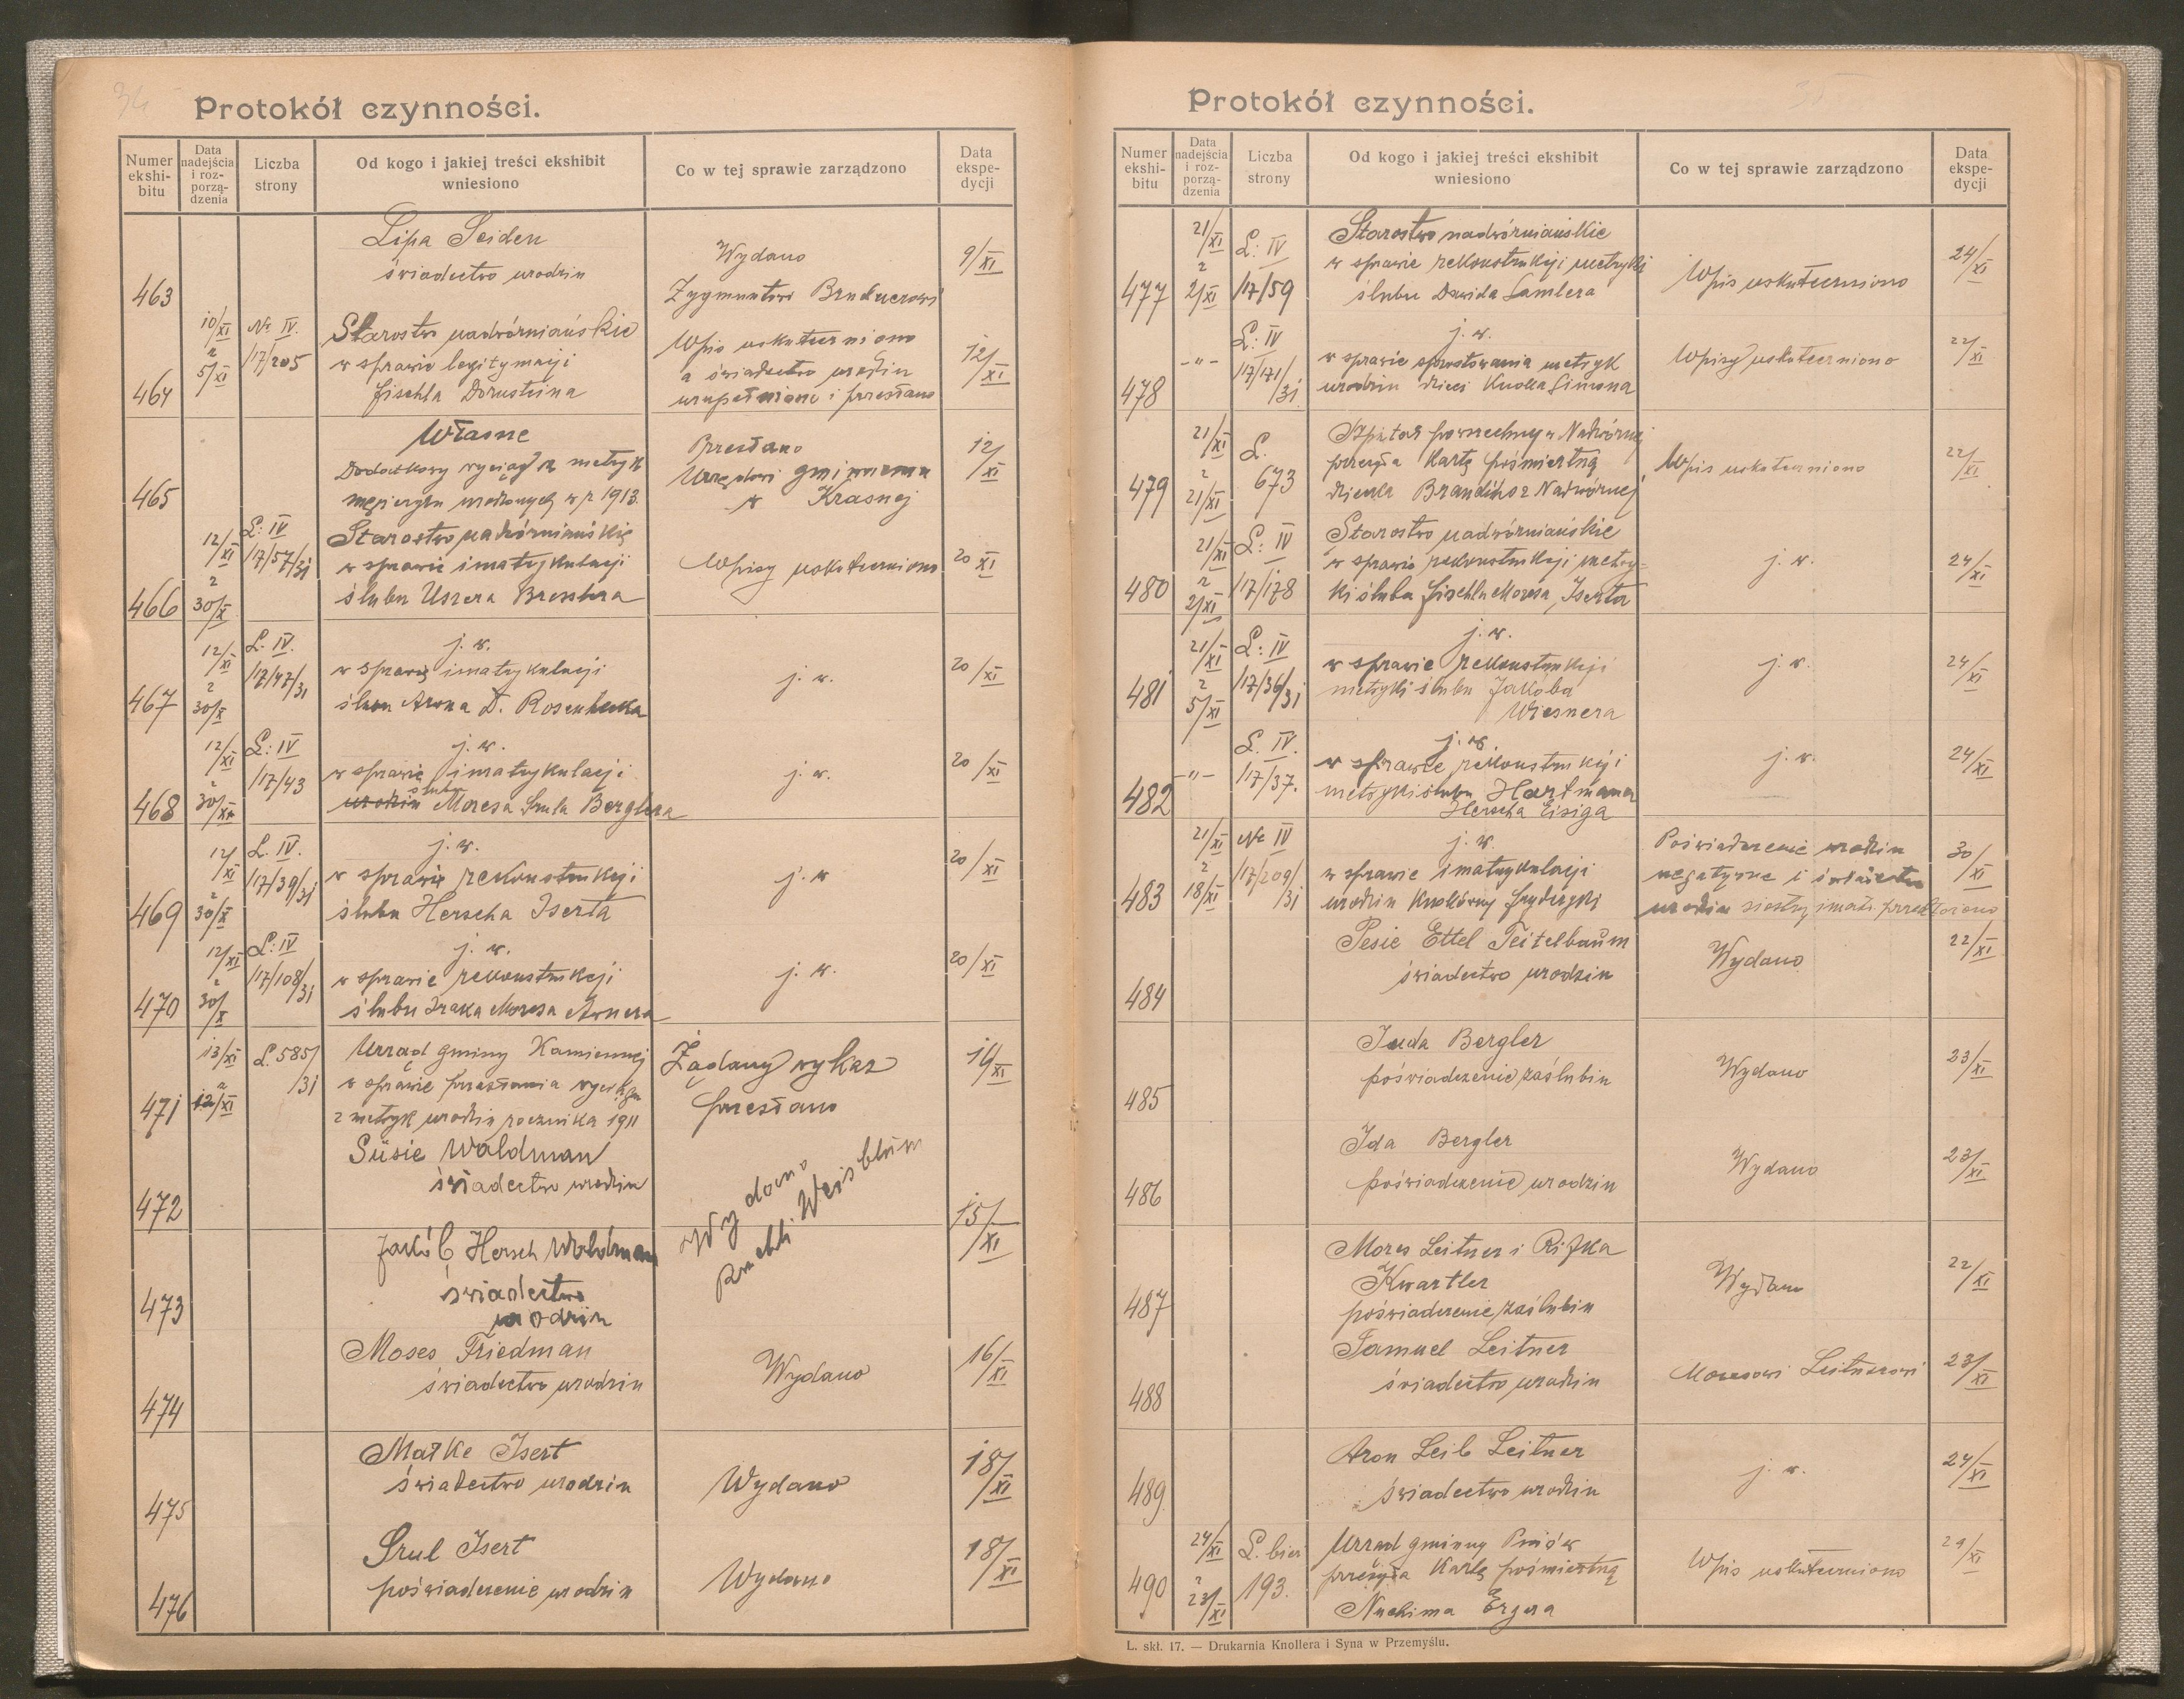 34
Protokół czynności.
Numer ekshi-bitu
Data nadejścia i roz-porzą-dzenia
Liczba strony
Od kogo i jakiej treści ekshibit wniesiono
Co w tej sprawie zarządzono
Data ekspe-dycji
463
Lipa Seiden
świadectwo urodzin
Wydano
Zygmuntowi Bruknerowi
9/XI
464
10/XI
z
5/XI
Nr IV.
17/205
Starostwo nadwórniańskie
w sprawie legitymacji
Fischla Dornsteina
Wpis uskuteczniono
a świadectwo urodzin
uzupełniono i przesłano
12/XI
465
Własne
Dodatkowy wyciąg z metryk
mężczyzn urodzonych w r. 1913.
Przesłano
Urzędowi gminnemu
w Krasnej
12/XI
466
12/XI
z
30/X
L: IV
17/57/31
Starostwo nadwórniańskie
w sprawie imatrykulacji
ślubu Uszera Bresslera
Wpisy uskuteczniono
20/XI
467
12/XI
z
30/X
L. IV.
17/47/31
j. w.
w sprawie imatrykulacji
ślubu Arona D. Rosenhecka
j. w.
20/XI
468
12/XI
z
30/X
L: IV
17/43
j. w.
w sprawie imatrykulacji
ślubu
urodzin Moresa Srula Berglera
j. w.
20/XI
469
12/XI
z
30/X
L. IV.
17/39/31
j. w.
w sprawie rekonstrukcji
ślubu Herscha Iserta
j. w
20/XI
470
12/XI
z
30/X
L: IV
17/108/31
j. w.
w sprawie rekonstrukcji
ślubu Izaka Moresa Arnera
j. w.
20/XI
471
13/XI
z
12/XI
L. 585/31
Urząd gminy Kamiennej
w sprawie przesłania wyciągu
z metryk urodzin rocznika 1911
Żądany wykaz
przesłano
14/XI
472
Süsie Waldman
świadectwo urodzin
Wydano
Weisblum
15/XI
473
Jakób Hersch Waldman
świadectwo
urodzin
474
Moses Friedman
świadectwo urodzin
Wydano
16/XI
475
Małke Isert
świadectwo urodzin
Wydano
18/XI
476
Srul Isert
poświadczenie urodzin
Wydano
18/XI
35
Protokół czynności.
Numer ekshi-bitu
Data nadejścia i roz-porzą-dzenia
Liczba strony
Od kogo i jakiej treści ekshibit wniesiono
Co w tej sprawie zarządzono
Data ekspe-dycji
477
21/XI
z
2/XI
L: IV
17/59
Starostwo nadwórniańskie
w sprawie rekonstrukcji metryki
ślubu Dawida Lamlera
Wpis uskuteczniono
24/XI
478
-"-
L: IV
17/171/31
j. w.
w sprawie sprostowania metryk
urodzin dzieci Knolla Simona
Wpisy uskuteczniono
22/XI
479
21/XI
z
21/XI
L.
673
Szpital powszechny w Nadwórnej
przesyła kartę pośmiertną
dziecka Brandihs z Nadwórnej
Wpis uskuteczniono
22/XI
480
21/XI
z
2/XI
L: IV
17/178
Starostwo nadwórniańskie
w sprawie rekonstrukcji metry-
ki ślubu Fischla Moresa Iserta
j. w.
24/XI
481
21/XI
z
5/XI
L: IV
17/36/31
j. w.
w sprawie rekonstrukcji
metryki ślubu Jakóba
Wiesnera
j. w.
24/XI
482
-"-
L. IV.
17/37.
j. w.
w sprawie rekonstrukcji
metryki ślubu Hartmana
Herscha Eisiga
j. w.
24/XI
483
21/XI
z
18/XI
Nr IV
17/209/31
j. w.
w sprawie imatrykulacji
urodzin Knollówny Fryderyki
Poświadczenie urodzin
negatywne i świadectwo
urodzin siostry imatr. przedłożono
30/XI
484
Pesie Ettel Teitelbaum
świadectwo urodzin
Wydano
22/XI
485
Juda Bergler
poświadczenie zaślubin
Wydano
23/XI
486
Ida Bergler
poświadczenie urodzin
Wydano
23/XI
487
Mores Leitner i Rifka
Kwartler
poświadczenie zaślubin
Wydano
22/XI
488
Samuel Leitner
świadectwo urodzin
Moresowi Leitnerowi
23/XI
489
Aron Leib Leitner
świadectwo urodzin
j. w.
24/XI
490
24/XI
z
23/XI
L. bież
193.
Urząd gminny Pniów
przesyła kartę pośmiertną
Nuchima Ergera
Wpis uskuteczniono
29/XI
L. skł. 17. — Drukarnia Knollera i Syna w Przemyślu.